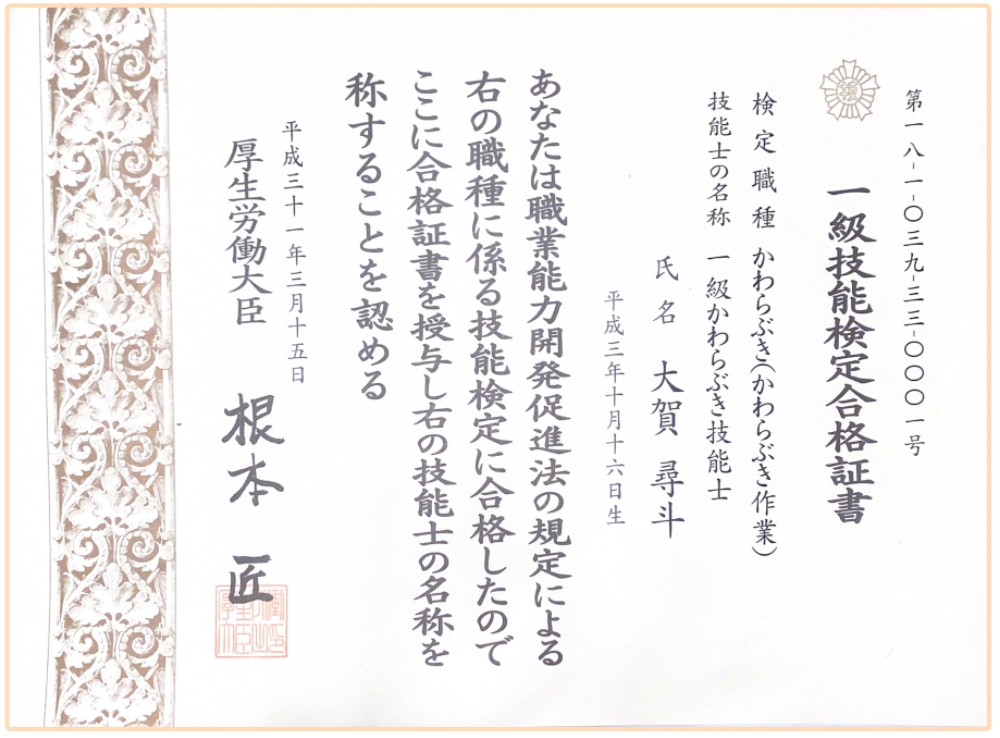 第一八-一-〇三九-三三-〇〇〇一号
一級技能検定合格証書
検定職種 かわらぶき(かわらぶき作業)
技能士の名称 一級かわらぶき技能士
氏名 大賀 尋斗
平成三年十月十六日生
あなたは職業能力開発促進法の規定による
右の職種に係る技能検定に合格したので
ここに合格証書を授与し右の技能士の名称を
称することを認める
平成三十一年三月十五日
厚生労働大臣 根本 匠